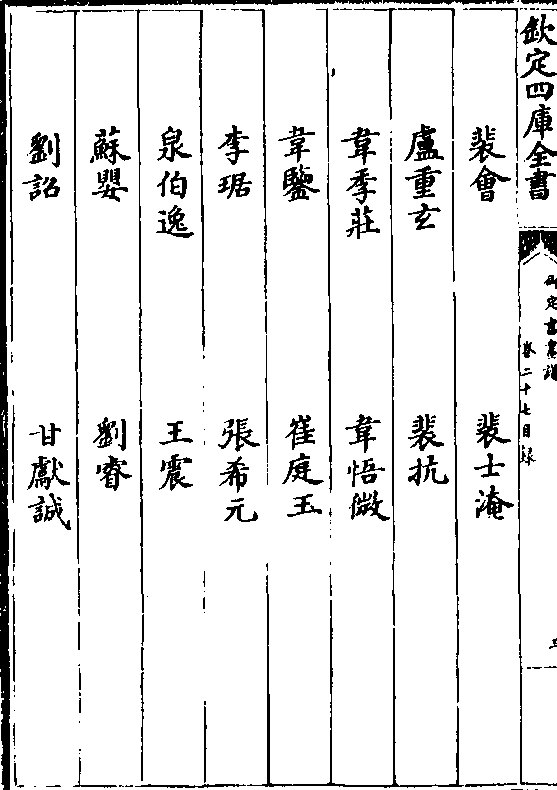 欽定四庫全書
御定書畫譜
卷二十七目録
裴會　裴士淹
盧重玄　裴抗
韋季莊　韋悟微
韋鑒　崔庭玉
李琚　張希元
泉伯逸　王震
蘇嬰　劉睿
劉詔　甘獻誠